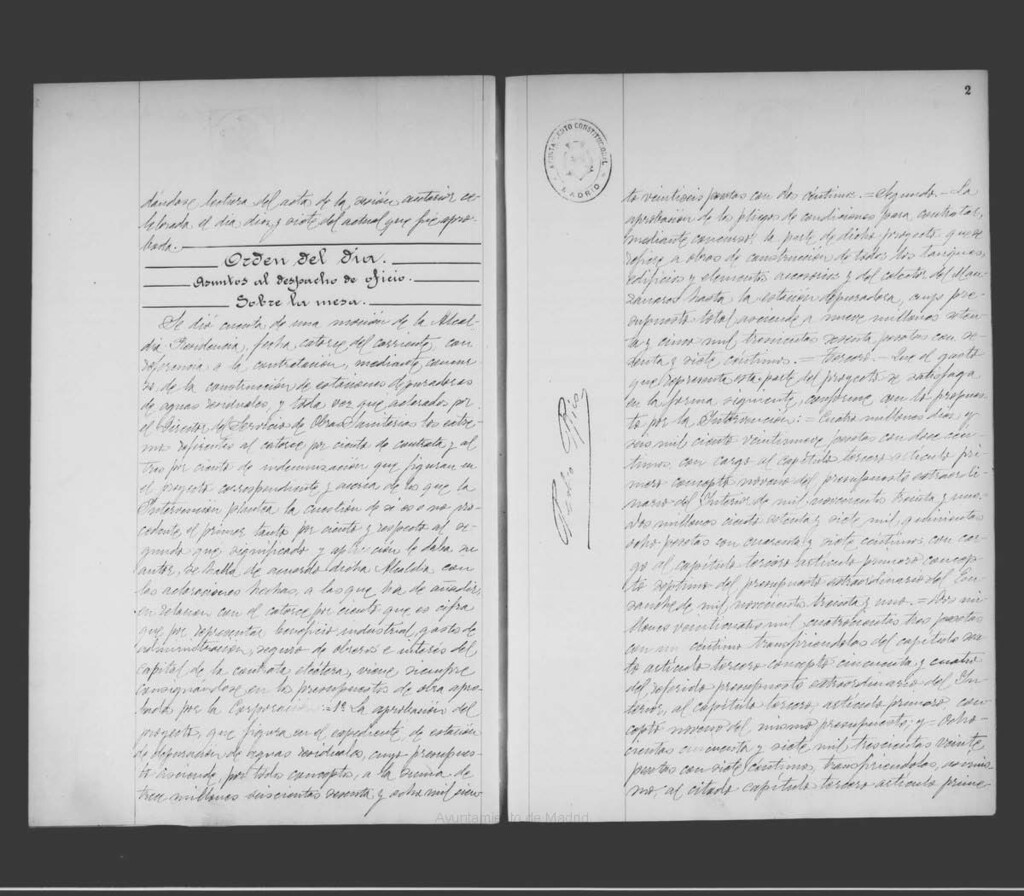 dándose lectura del acta de la sesión anterior ce-
lebrada el día diez y siete del actual que fué apro-
bada.
Orden del Día.
Asuntos al despacho de oficio.
Sobre la mesa.
Se dió cuenta de una moción de la Alcal-
día Presidencia, fecha catorce del corriente, con
referencia a la contratación, mediante concur-
so, de la construcción de estaciones depuradoras
de aguas residuales, y toda vez que aclarados por
el Director de Servicios de Obras Sanitarias los extre-
mos referentes al catorce por ciento de contrata y al
tres por ciento de indemnización que figuran en
el proyecto correspondiente y acerca de los que la
Intervención plantea la cuestión de si es o no pro-
cedente el primer tanto por ciento y respecto al se-
gundo que significado y aplicación le daba su
autor, se halla de acuerdo dicha Alcaldía, con
las aclaraciones hechas, a las que ha de añadir
en relación con el catorce por ciento que es cifra
que por representar beneficio industrial, gastos de
administración, seguro de obreros e interés del
capital de la contrata etcétera, viene siempre
consignándose en los presupuestos de obra apro-
bada por la Corporación 1º La aprobación del
proyecto, que figura en el expediente de estación
de depuración de aguas residuales, cuyo presupues-
to asciende, por todos conceptos, a la suma de
trece millones seiscientas setenta y ocho mil cien-
2
AYUNTAMIENTO CONSTITUCIONAL
MADRID
Pedro Rico
to veintiseis pesetas con dos céntimos = Segundo - La
aprobación de los pliegos de condiciones para contratar,
mediante concurso la parte de dicho proyecto que se
refiere a obras de construcción de todos los tanques,
edificios y elementos accesorios y del colector del Man-
zanares hasta la estación depuradora, cuyo pre-
supuesto total asciende a nueve millones setен-
ta y cinco mil trescientas sesenta pesetas con se-
senta y siete céntimos. = Tercero - Que el gasto
que representa esta parte del proyecto se satisfaga
en la forma siguiente, conforme con lo propues-
to por la Intervención: = Cuatro millones diez y
seis mil ciento veintinueve pesetas con doce cén-
timos con cargo al capítulo tercero artículo pri-
mero concepto noveno del presupuesto extraordi-
nario del Interior de mil novecientos treinta y uno.
Dos millones ciento setenta y siete mil quinientas
ocho pesetas con cuarenta y siete céntimos con car-
go al capítulo tercero artículo primero concep-
to séptimo del presupuesto extraordinario del En-
sanche de mil novecientos treinta y uno. = Dos mi-
llones veinticuatro mil cuatrocientas tres pesetas
con un céntimo transfiriéndolas del capítulo
artículo tercero concepto cincuenta y cuatro
del referido presupuesto extraordinario del In-
terior, al capítulo tercero artículo primero, con-
cepto noveno del mismo presupuesto; y = Ocho-
cientas cincuenta y siete mil trescientas veinte
pesetas con siete céntimos, transfiriéndolas, asimis-
mo, al citado capítulo tercero artículo prime-
Ayuntamiento de Madrid